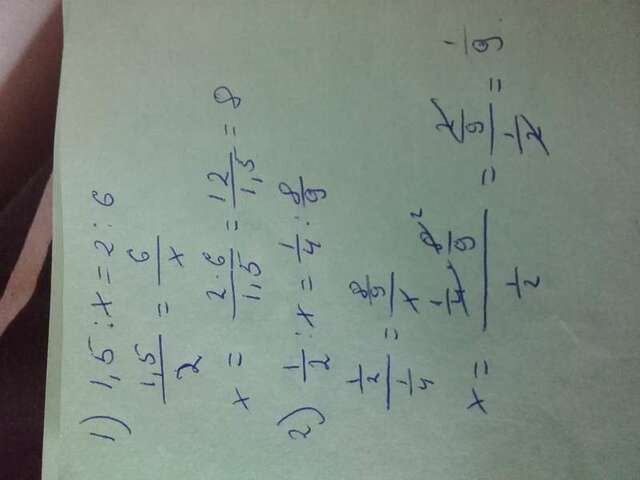 1) 1,5 : x = 2 : 6
1,5/2 = 6/x
x = 2·6/1,5 = 12/1,5 = 8
2) 1/2 : x = 1/4 : 8/9
(1/2)/(1/4) = (8/9)/x
x = (1/4 · 8/9)/(1/2) = (2/9)/(1/2) = 1/9.